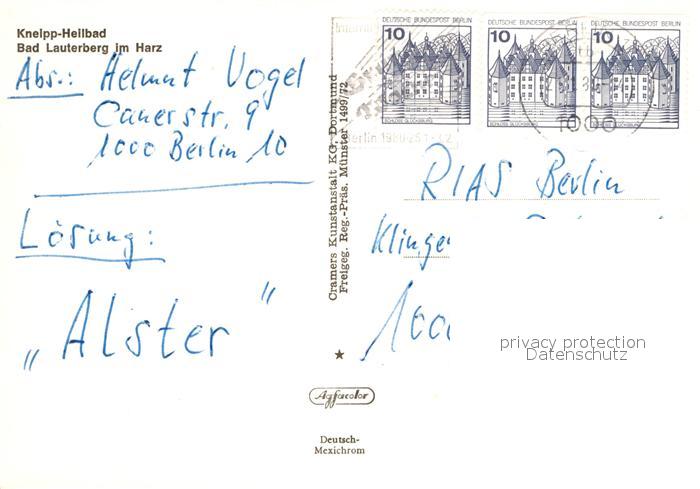 Kneipp-Heilbad
Bad Lauterberg im Harz
Abs.: Helmut Vogel
Cauerstr. 9
1000 Berlin 10
Lösung:
„Alster"
Cramers Kunstanstalt KG. Dortmund
Freigeg. Reg.-Präs. Münster 1499/72
Agfacolor
Deutsch-
Mexichrom
DEUTSCHE BUNDESPOST BERLIN
10
SCHLOSS GLÜCKSBURG
DEUTSCHE BUNDESPOST BERLIN
10
SCHLOSS GLÜCKSBURG
DEUTSCHE BUNDESPOST BERLIN
10
SCHLOSS GLÜCKSBURG
1000
RIAS Berlin
privacy protection
Datenschutz